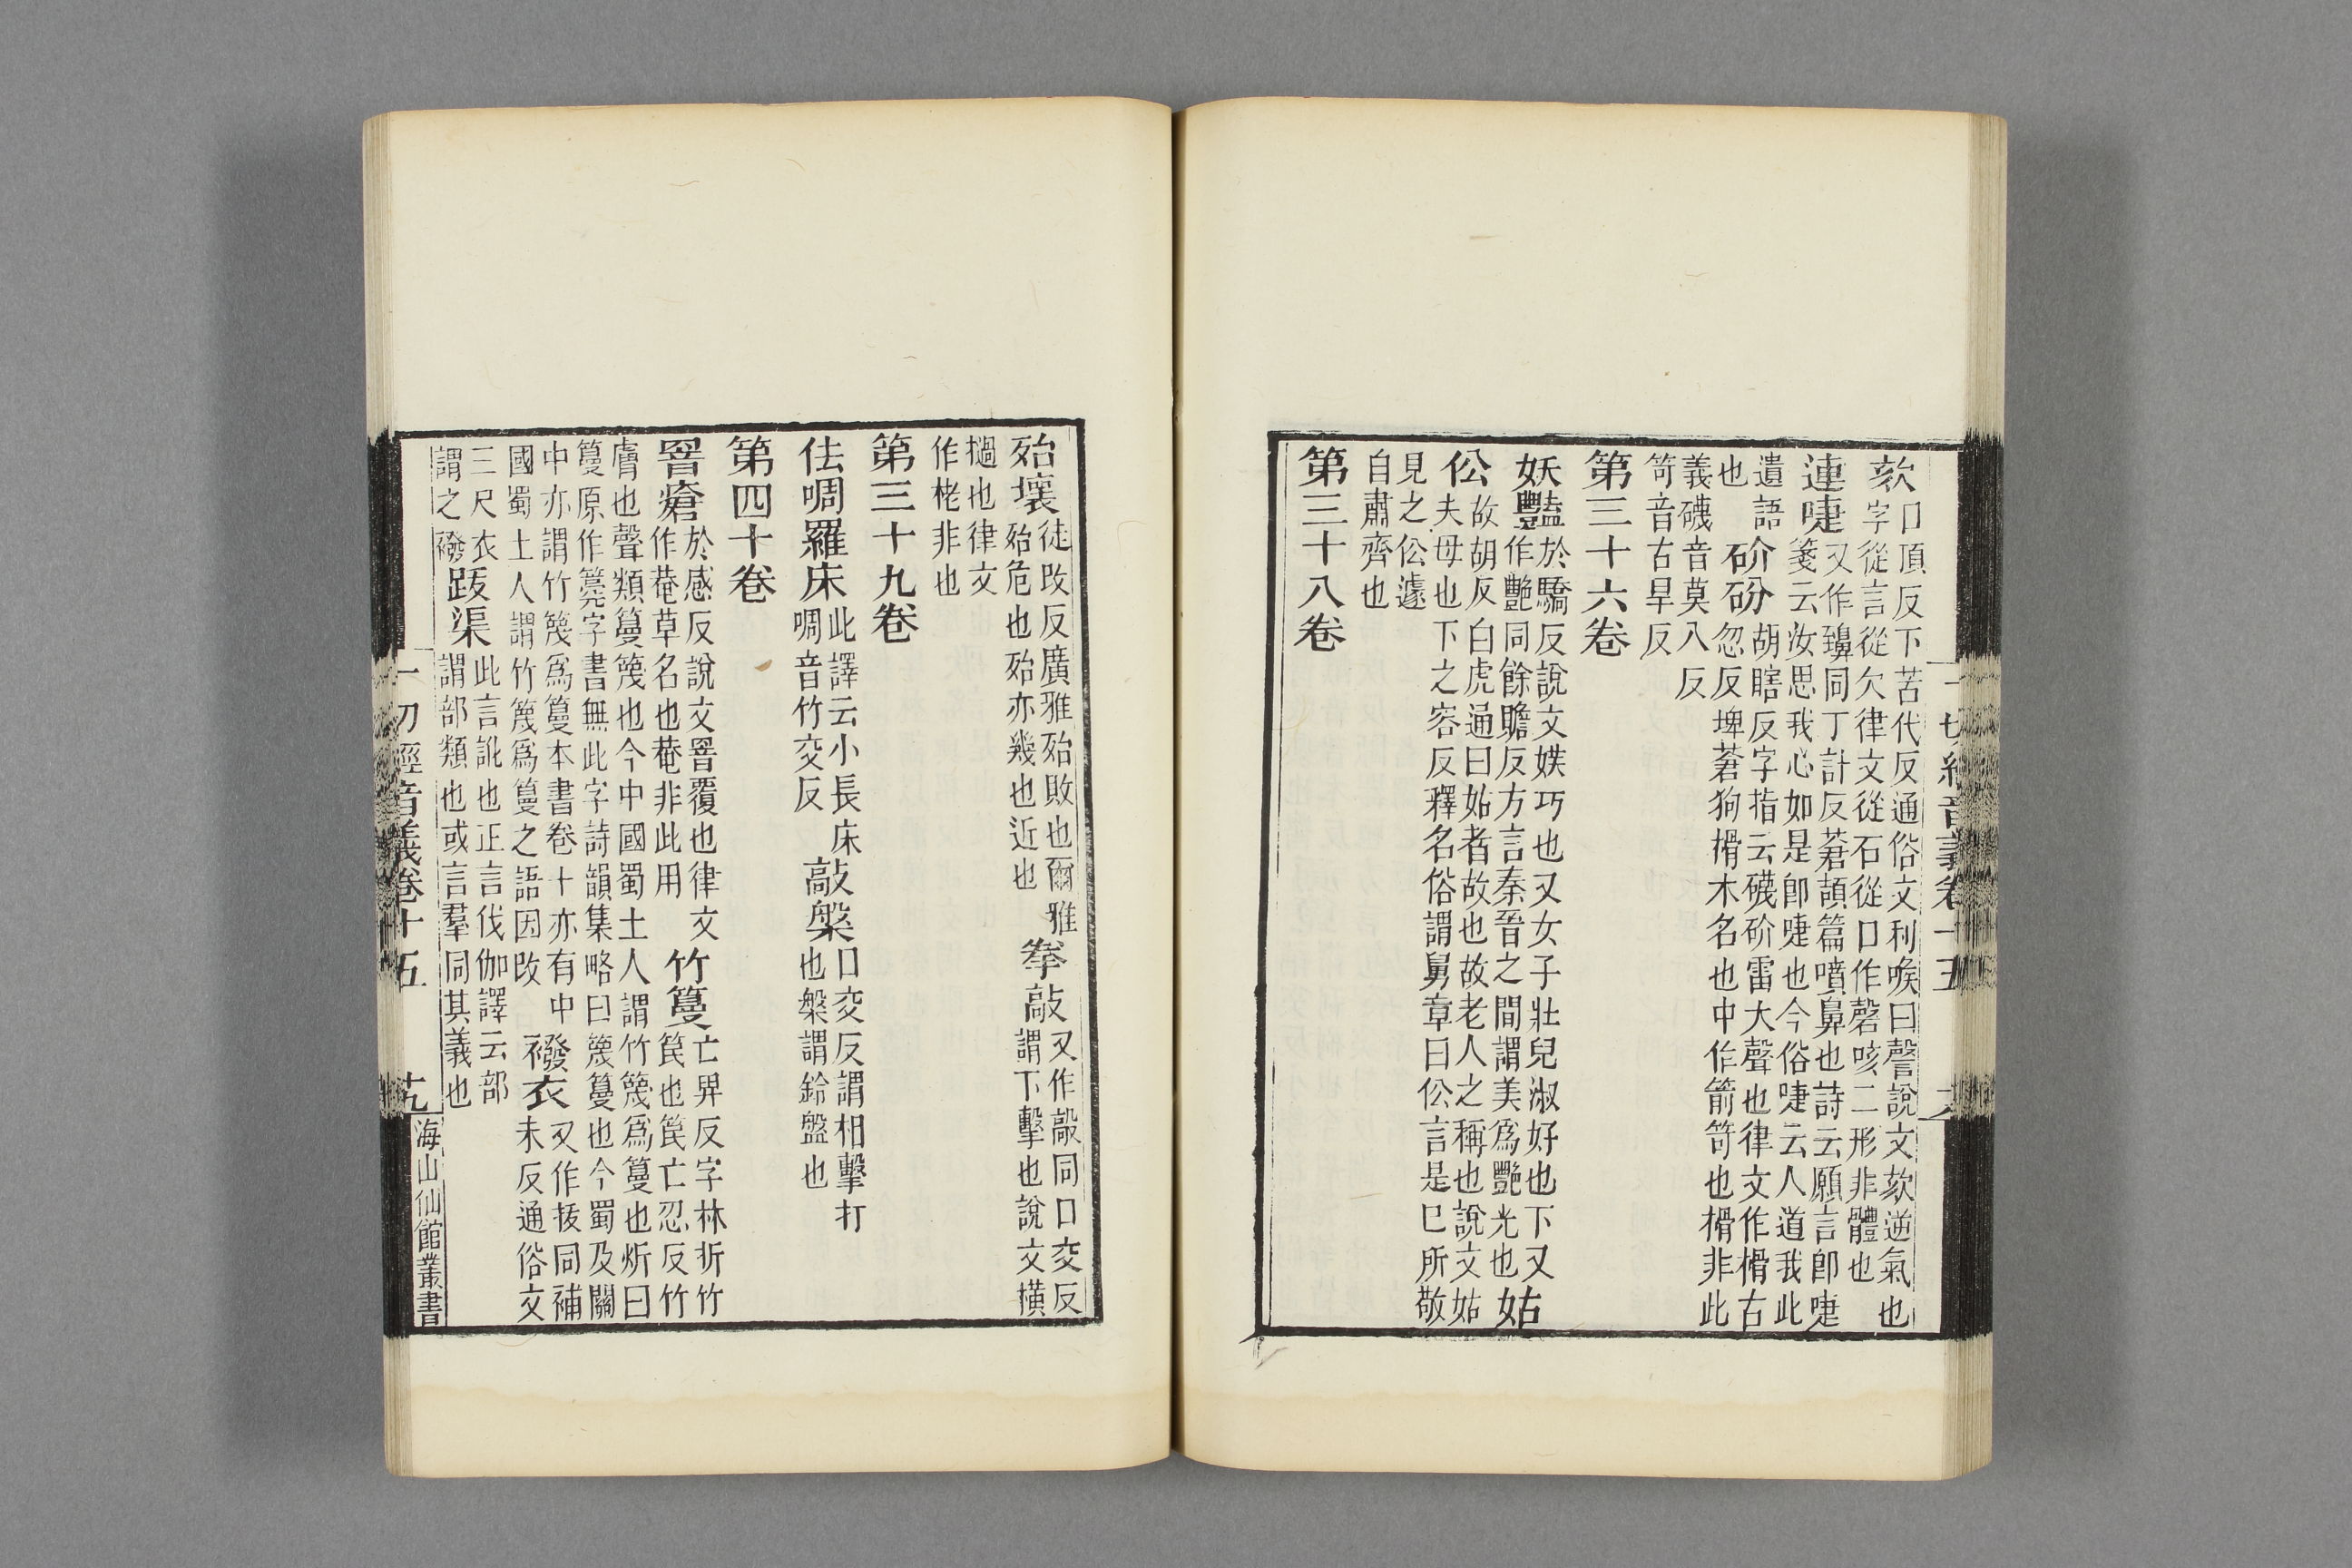 欬口頂反下苦代反通俗文利喉曰謦說文欬逆氣也
字從言從欠律文從石從口作磬咳二形非體也
連嚏又作㘔同丁計反蒼頡篇噴鼻也詩云願言卽嚏
箋云汝思我心如是卽嚏也今俗嚏云人道我此
遺語
也
砎砏胡瞎反字指云礣砎雷大聲也律文作榾右
忽反埤蒼狗榾木名也中作箭笴也榾非此
義礣音莫八反
笴音古旱反
第三十六卷
妖豔於驕反說文媄巧也又女子壯皃淑好也下又
作艷同餘贍反方言秦晉之間謂美爲艷光也姑
伀故胡反白虎通曰姑者故也故老人之稱也說文姑
夫母也下之容反釋名俗謂舅章曰伀言是巳所敬
見之伀遽
自肅齊也
第三十八卷
一切經音義卷十五
殆壞徒改反廣雅殆敗也爾雅
殆危也殆亦幾也近也
搴敲又作毃同口交反
謂下擊也說文橫
檛也律文
作栳非也
第三十九卷
佉啁羅床此譯云小長床
啁音竹交反
敲槃口交反謂相擊打
也槃謂鈴盤也
第四十卷
罯瘡於感反說文罯覆也律文
作菴草名也菴非此用
竹篾亡卑反字林折竹
笢也笢亡忍反竹
膚也聲類篾篾也今中國蜀土人謂竹篾爲篾也炘曰
篾原作篾字書無此字詩韻集略曰篾篾也今蜀及關
中亦謂竹篾爲篾本書卷十亦有中
國蜀土人謂竹篾爲篾之語因改
襏衣又作袚同補
未反通俗文
三尺衣
謂之襏
跋渠此言訛也正言伐伽譯云部
謂部類也或言羣同其義也
一切經音義卷十五
海山仙館叢書